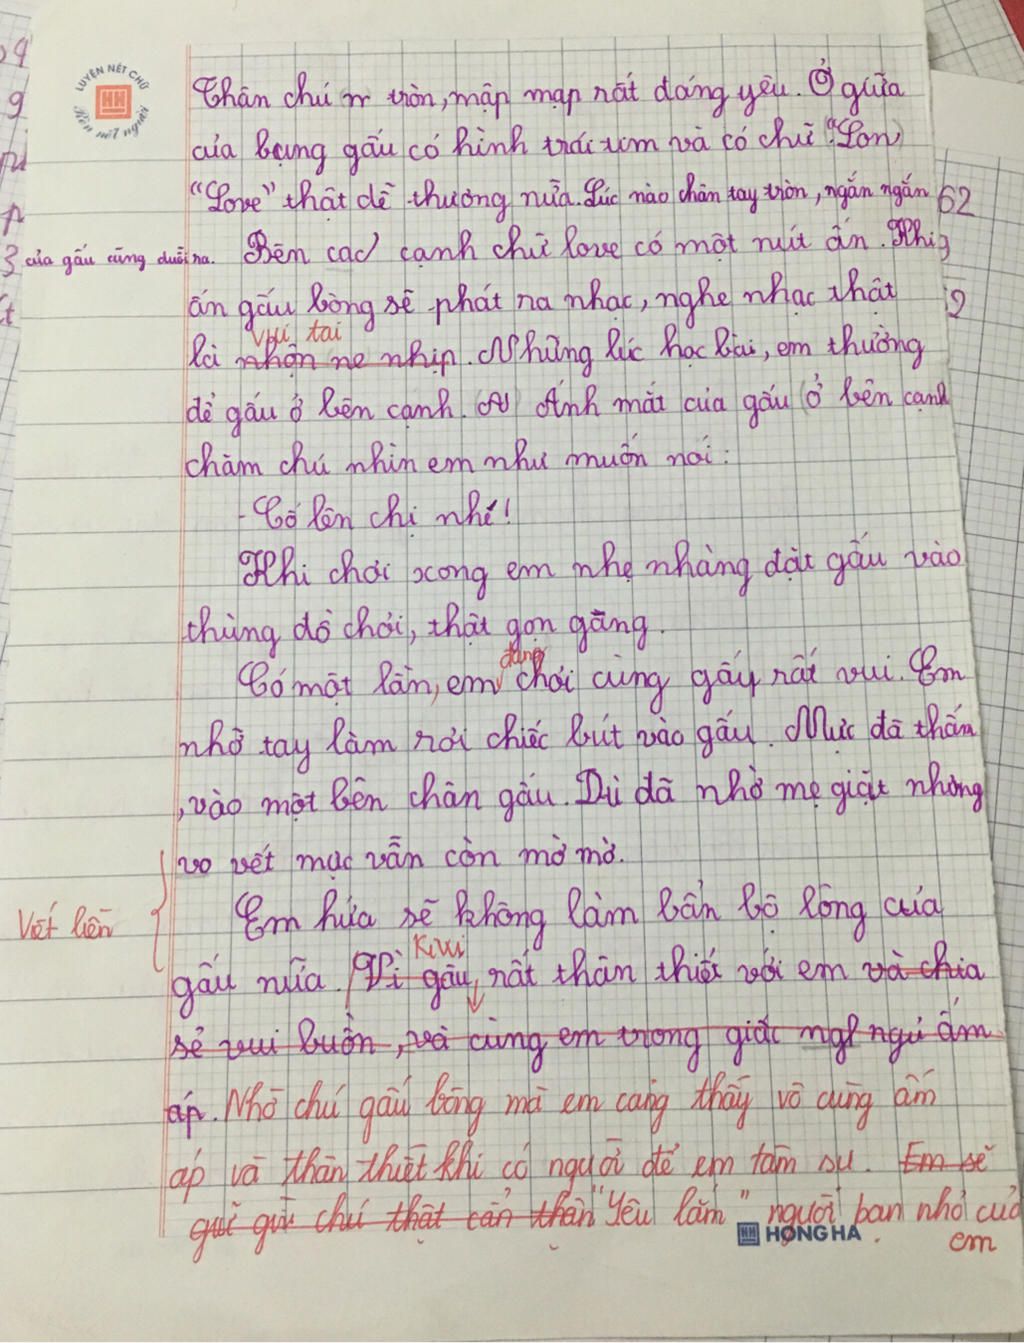 LUYỆN NÉT CHỮ
Rèn nết người
Thân chú tròn, mập mạp rất đáng yêu. Ở giữa
của bụng gấu có hình trái tim và có chữ "Lon
"Love" thật dễ thương nữa. Lúc nào chân tay tròn, ngắn ngắn
của gấu cũng duỗi ra. Bên cạc cạnh chữ love có một nút ấn. Khi
ấn gấu bông sẽ phát ra nhạc, nghe nhạc thật
vui tai
là nhộn nẹ nhịp. Những lúc học bài, em thường
để gấu ở bên cạnh. Ánh mắt của gấu ở bên cạnh
chăm chú nhìn em như muốn nói:
- Cố lên chị nhé!
Khi chơi xong em nhẹ nhàng đặt gấu vào
thùng đồ chơi, thật gọn gàng.
đang
Có một lần, em chơi cùng gấy rất vui. Em
nhỡ tay làm rơi chiếc bút vào gấu. Mực đã thấm
,vào một bên chân gấu. Dù đã nhờ mẹ giặt nhưng
vo vết mực vẫn còn mờ mờ.
Viết liền
Em hứa sẽ không làm bẩn bộ lông của
Kiwi
gấu nữa. Vì gấu rất thân thiết với em và chia
sẻ vui buồn, và cùng em trong giấc ngủ ấm
áp. Nhờ chú gấu bông mà em càng thấy vô cùng ấm
áp và thân thiết khi có người để em tâm sự. Em sẽ
giữ gìn chú thật cẩn thận "Yêu lắm" người bạn nhỏ của
em
HONG HA
62
9